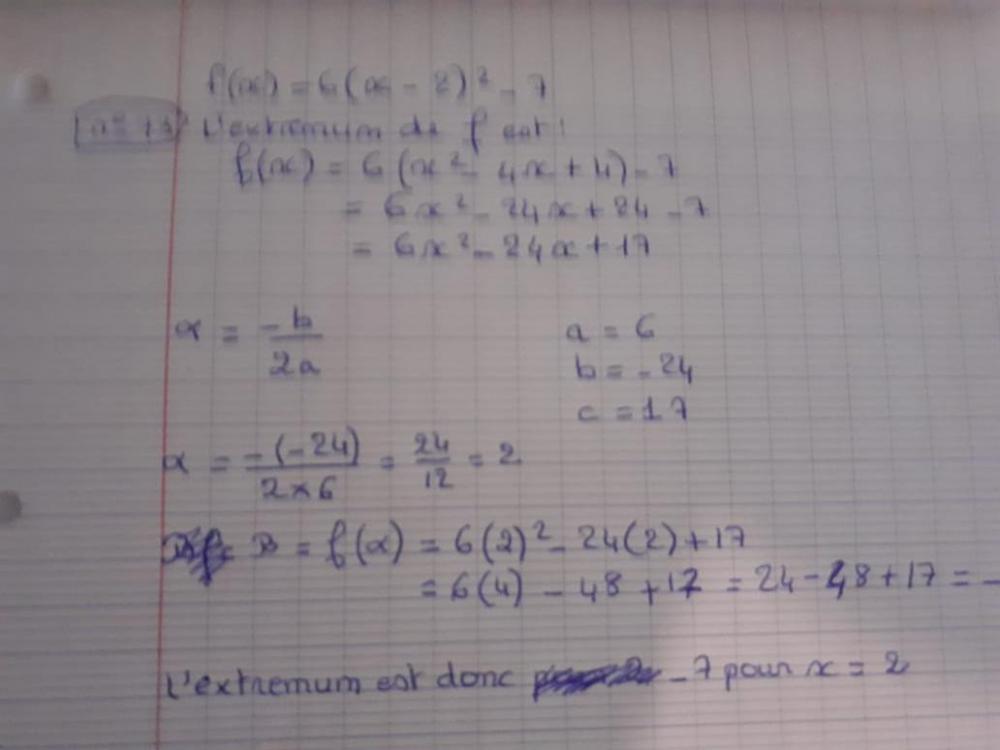 f(x) = 6(x - 2)² - 7
L'extremum de f est :
f(x) = 6(x² - 4x + 4) - 7
= 6x² - 24x + 24 - 7
= 6x² - 24x + 17
α = -b / 2a
a = 6
b = -24
c = 17
α = -(-24) / 2×6 = 24 / 12 = 2
B = f(α) = 6(2)² - 24(2) + 17
= 6(4) - 48 + 17 = 24 - 48 + 17 = -
L'extremum est donc -7 pour x = 2